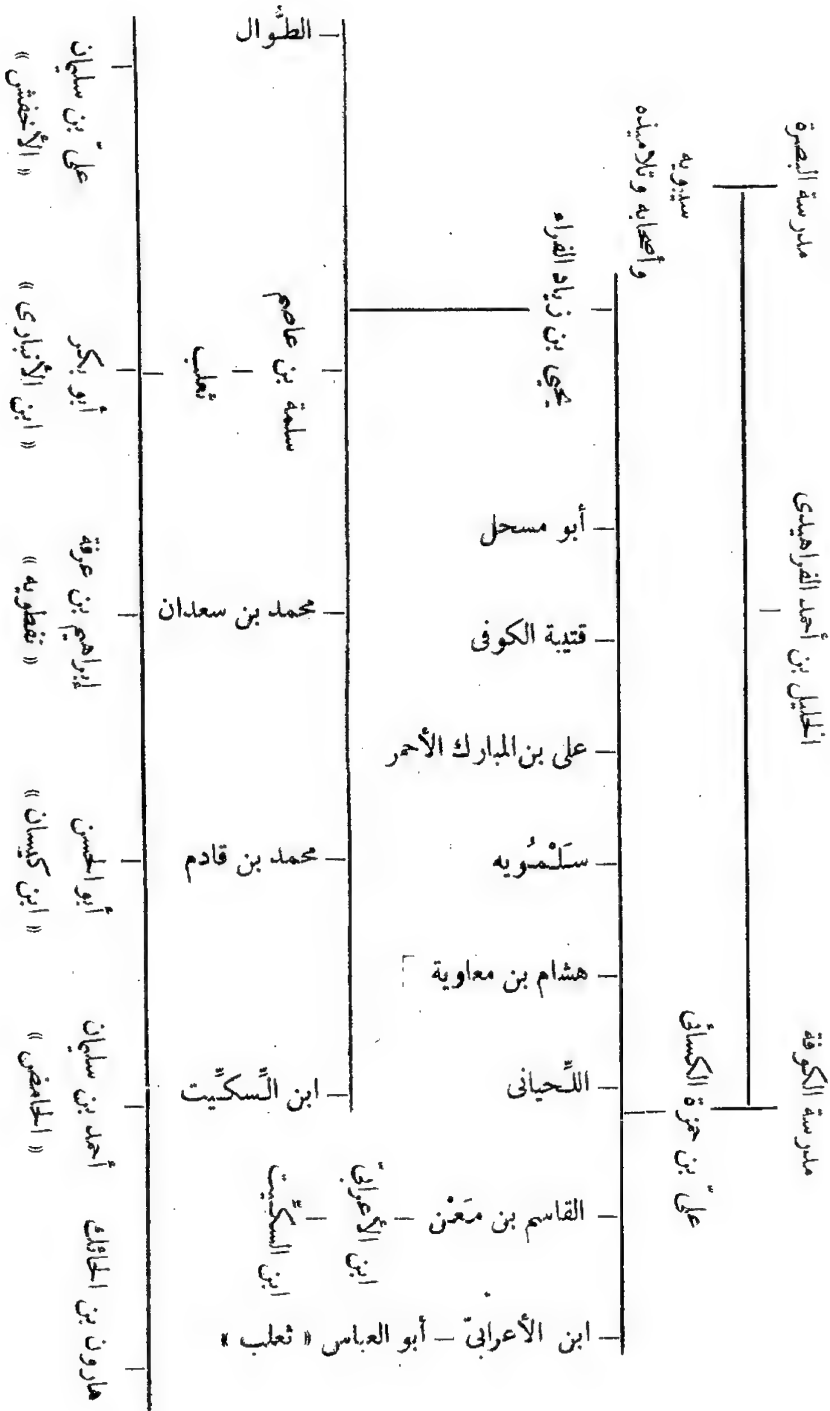 الخليل بن أحمد الفراهيدى
مدرسة البصرة
مدرسة الكوفة
سيبويه
وأصحابه وتلاميذه
علىّ بن حمزة الكسائى
يحيى بن زياد الفراء
أبو مسحل
قتيبة الكوفى
على بن المبارك الأحمر
سَلْمُويه
هشام بن معاوية
اللِّحيانى
القاسم بن مَعْن – ابن الأعرابىّ – ابن السكِّيت
ابن الأعرابىّ – أبو العباس « ثعلب »
الطُّوال
سلمة بن عاصم – ثعلب
محمد بن سعدان
محمد بن قادم
ابن السِّكِّيت
علىّ بن سليمان
« الأخفش »
أبو بكر
« ابن الأنبارى »
إبراهيم بن عرفة
« نفطويه »
أبو الحسن
« ابن كيسان »
أحمد بن سليمان
« الحامض »
هارون بن الحائك